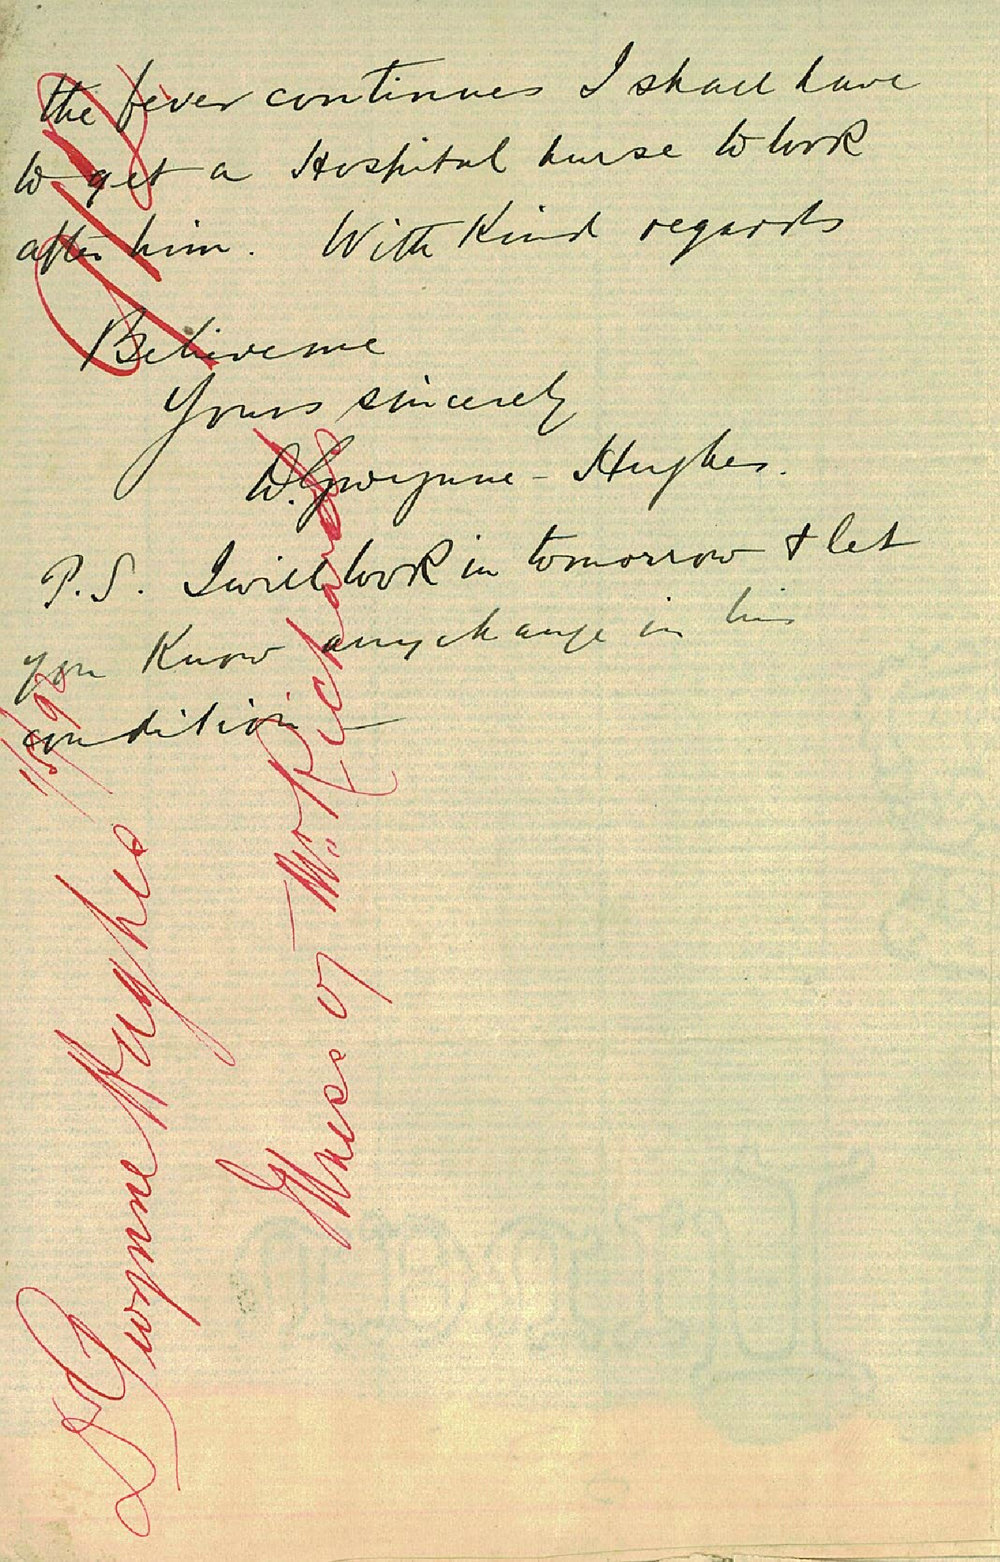 the fever continues I shall have
to get a Hospital nurse to look
after him. With Kind regards
Believe me
Yours sincerely
W. Gwynne-Hughes.
P.S. I will look in tomorrow & let
you Know any change in his
condition —
Dr Gwynne Hughes
Illness of — Mr Richards